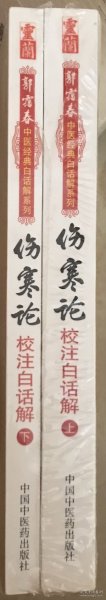 灵兰
郭霭春
中医经典白话解系列
伤寒论
校注白话解
下
中国中医药出版社
灵兰
郭霭春
中医经典白话解系列
伤寒论
校注白话解
上
中国中医药出版社